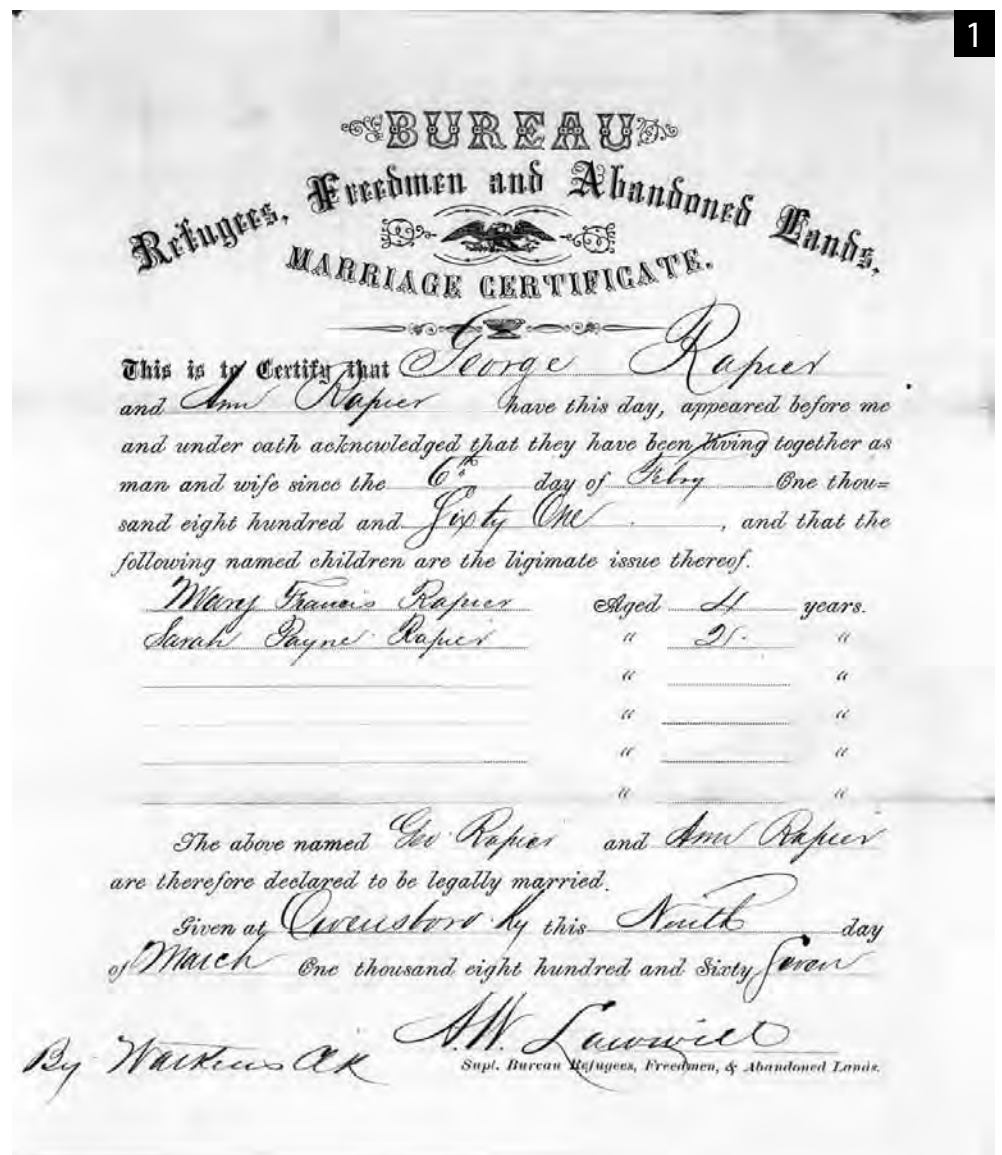 1
BUREAU
Refugees, Freedmen and Abandoned Lands,
MARRIAGE CERTIFICATE.
This is to Certify that George Rapier
and Ann Rapier have this day, appeared before me
and under oath acknowledged that they have been living together as
man and wife since the 6th day of Febry One thou=
sand eight hundred and Sixty One , and that the
following named children are the ligimate issue thereof.
Mary Francis Rapier Aged 4 years.
Sarah Payne Rapier " "
" "
" "
" "
" "
The above named Geo Rapier and Ann Rapier
are therefore declared to be legally married.
Given at Owensboro Ky this Ninth day
of March One thousand eight hundred and Sixty Seven
A.W. Lawwill
Supt. Bureau Refugees, Freedmen, & Abandoned Lands.
By Watkins